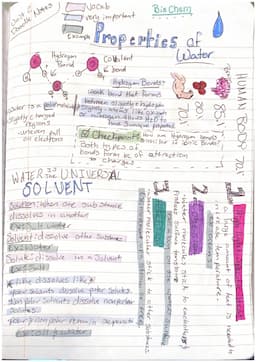 Vocab
BioChem
very important
Example
Properties of
Water
Hydrogen
Bond
Covalent
bond
Hydrogen Bonds:
weak bond that forms
between slightly + hydrogen
Water is a polar molecule
slightly charged
regions
uneven pull
on electrons
Checkpoint:
How are Hydrogen bonds
similar to Ionic Bonds?
Both types of
bonds form b/c of attraction
to charges
HUMAN BODY 70%
80%
85%
WATER IS THE UNIVERSAL
SOLVENT
Solution: when one substance
dissolves in another
Ex: Salt water
Solvent: dissolves other substance
Ex: Water
Solute: dissolves in a Solvent
Ex: Salt
Like dissolves like
polar solvents dissolve polar solutes
non polar solvents dissolve nonpolar
solutes
polar & non polar remain separate
Ex: oil & water
1
large amount of heat is needed to
increase temperature
2
water molecules stick to each other
Produces surface tension
3
water molecules stick to other substances